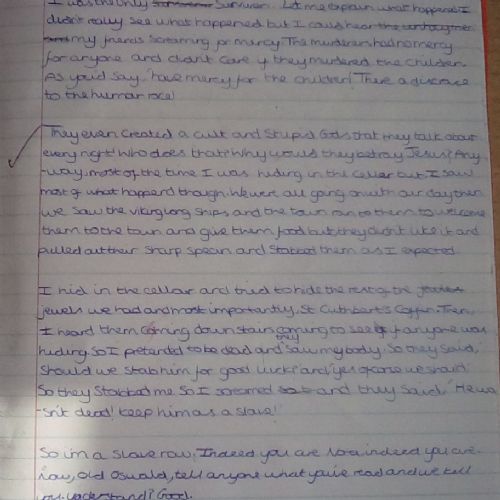 I was the only Surviver. Let me explain what happened. I
didn't really see what happened but I could hear
my friends Screaming for mercy. The murderers had no mercy
for anyone and didn't care if they murdered the children.
As you'd say, "have mercy for the children! There a disgrace
to the human race!
They even created a cult and stupid Gods that they talk about
every night! Who does that? Why would they betray Jesus? Any
-way, most of the time I was hiding in the cellar but I saw
most of what happend though. We were all going on with our day then
we saw the viking long ships and the town ran to them to welcome
them to the town and give them food but they didn't like it and
pulled out their sharp spears and Stabbed them as I expected.
I hid in the cellar and tried to hide the rest of the
jewels we had and most importantly, St Cuthbert's Coffin. Then,
I heard them coming down stairs coming to see if anyone was
hiding so I pretended to be dead and they saw my body. So they said,
should we stab him for good luck? and yes of corse we should!
So they Stabbed me. So I screamed and they said, "He wa
-sn't dead! Keep him as a slave!"
So im a slave now. Indeed you are indeed you are.
Now, old Oswald, tell anyone what you've read and we kell
you. Understand? Good.